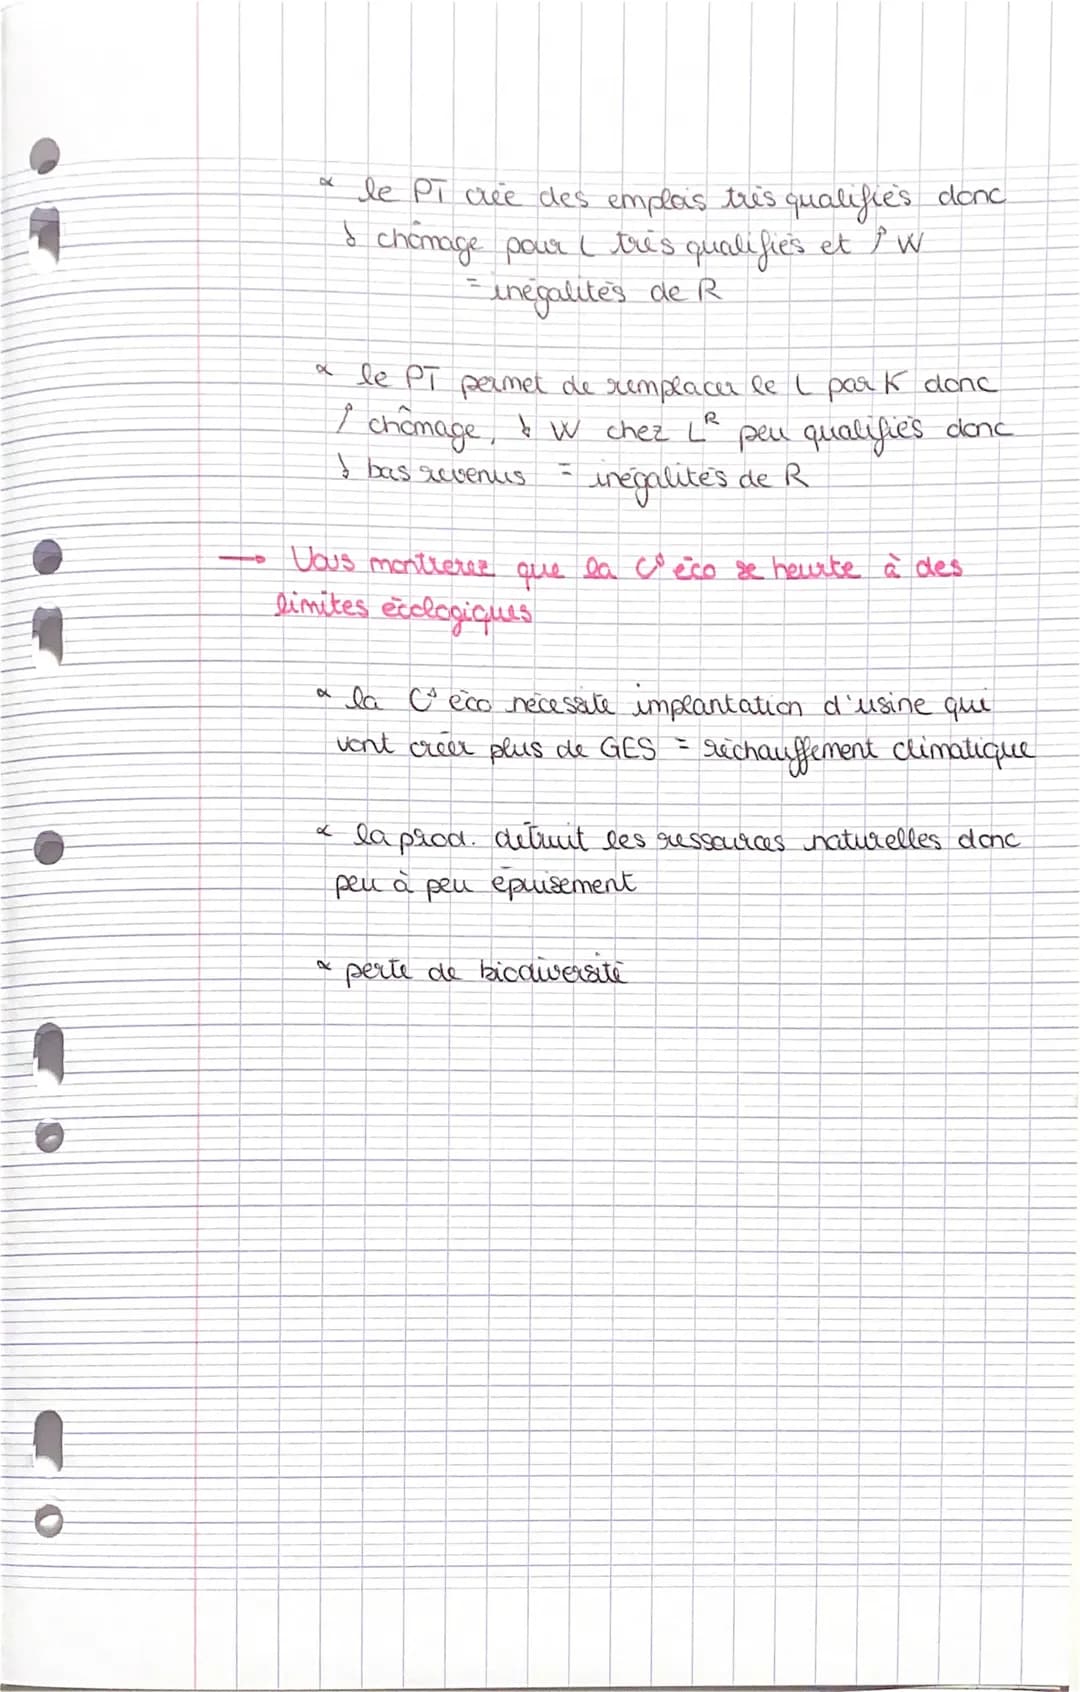 ∝ le PT crée des emplois très qualifiés donc
↓ chômage pour L très qualifiés et ↑ W
= inégalités de R
∝ le PT permet de remplacer le L par K donc
↑ chômage, ↓ W chez Lᴿ peu qualifiés donc
↓ bas revenus = inégalités de R
→ Vous montrerez que la Cº éco se heurte à des
limites écologiques
∝ la Cº éco nécessite implantation d'usine qui
vont créer plus de GES = réchauffement climatique
∝ la prod. détruit les ressources naturelles donc
peu à peu épuisement
∝ perte de biodiversité